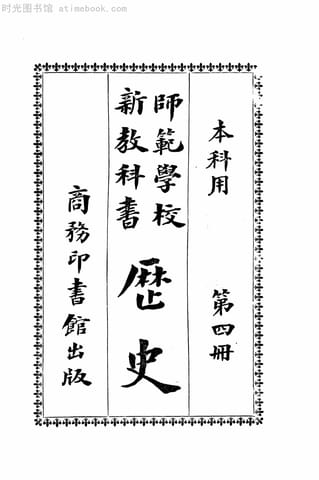 时光图书馆 atimebook.com
本科用 第四冊
師範學校
新教科書
歷史
商務印書館出版